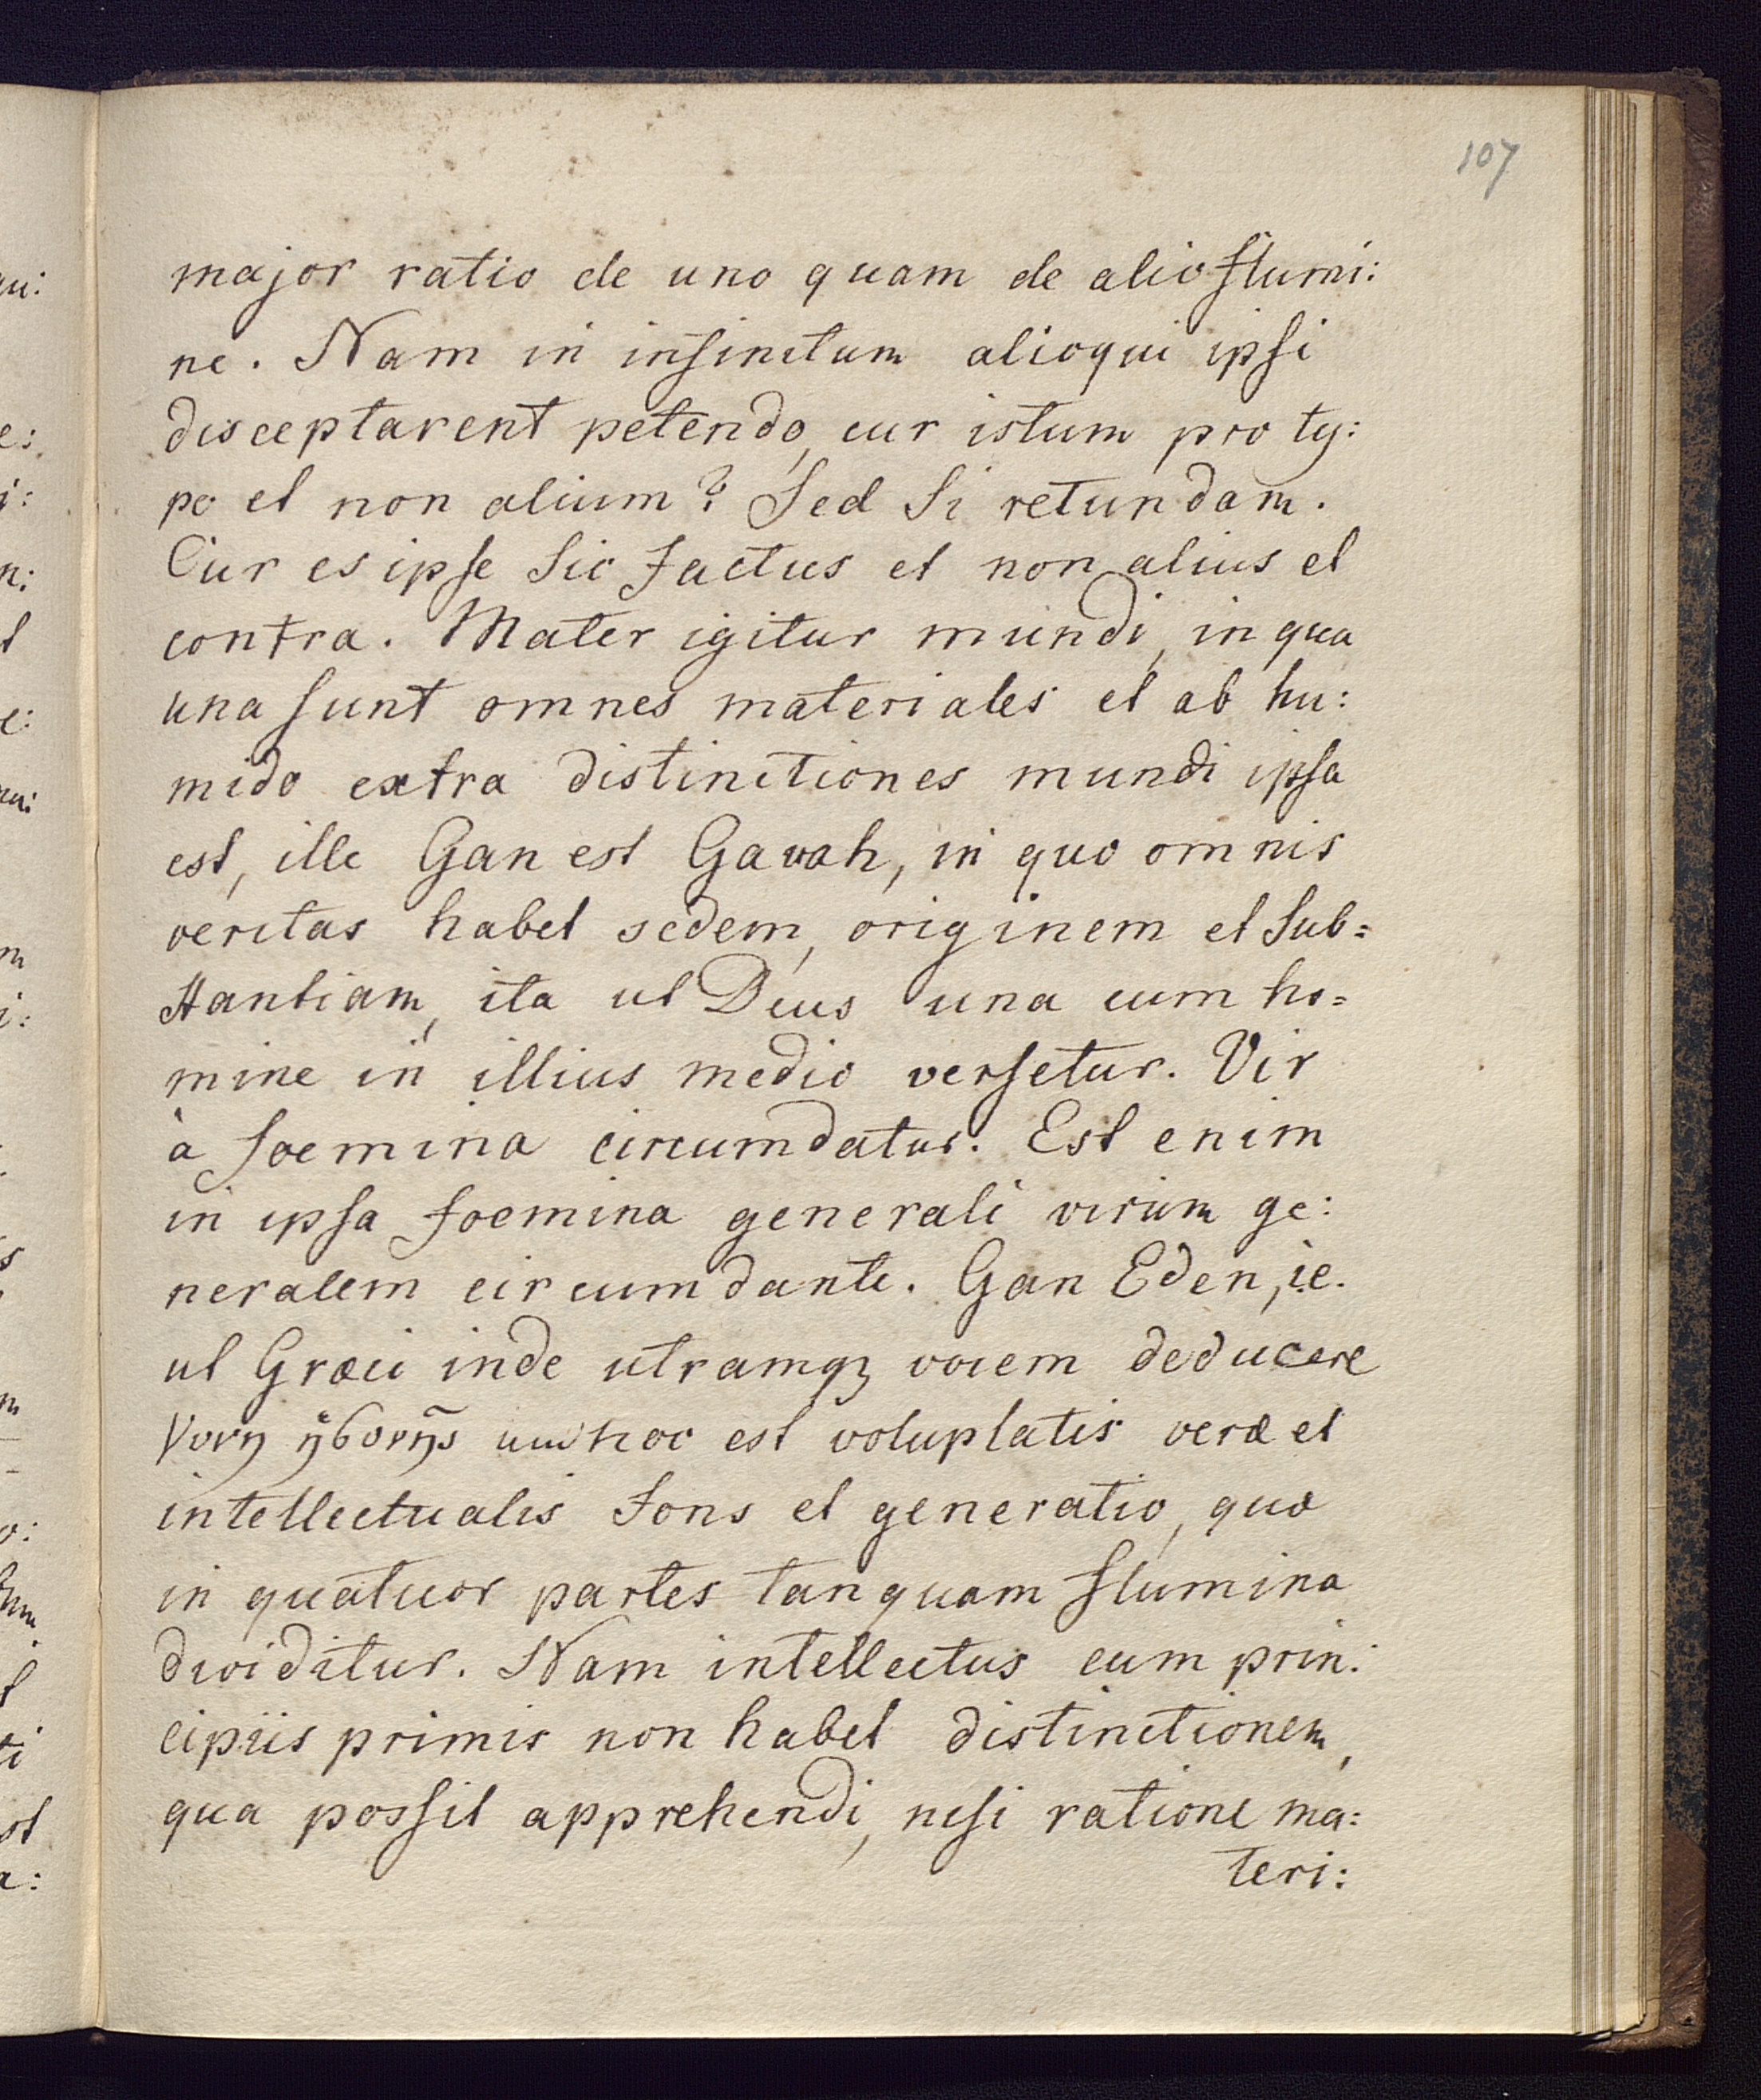 107
major ratio de uno quam de alio flumi:
ne. Nam in infinitum alioqui ipsi
disceptarent petendo, cur istum pro ty:
po et non alium? Sed si retundam.
Cur es ipse sic factus et non alius et
contra. Mater igitur mundi, in qua
una sunt omnes materiales et ab hu:
mido extra distinctiones mundi ipsa
est, ille Gan est Gavah, in quo omnis
veritas habet sedem, originem et sub=
stantiam, ita ut Deus una cum ho=
mine in illius medio versetur. Vir
à foemina circumdatur. Est enim
in ipsa foemina generali virum ge:
neralem circumdante. Gan Eden, i.e.
ut Græci inde utramqz vocem deducere
hoc est voluptatis veræ et
intellectualis fons et generatio, quæ
in quatuor partes tanquam flumina
dividitur. Nam intellectus cum prin:
cipiis primis non habet distinctionem,
qua possit apprehendi, nisi ratione ma:
teri: